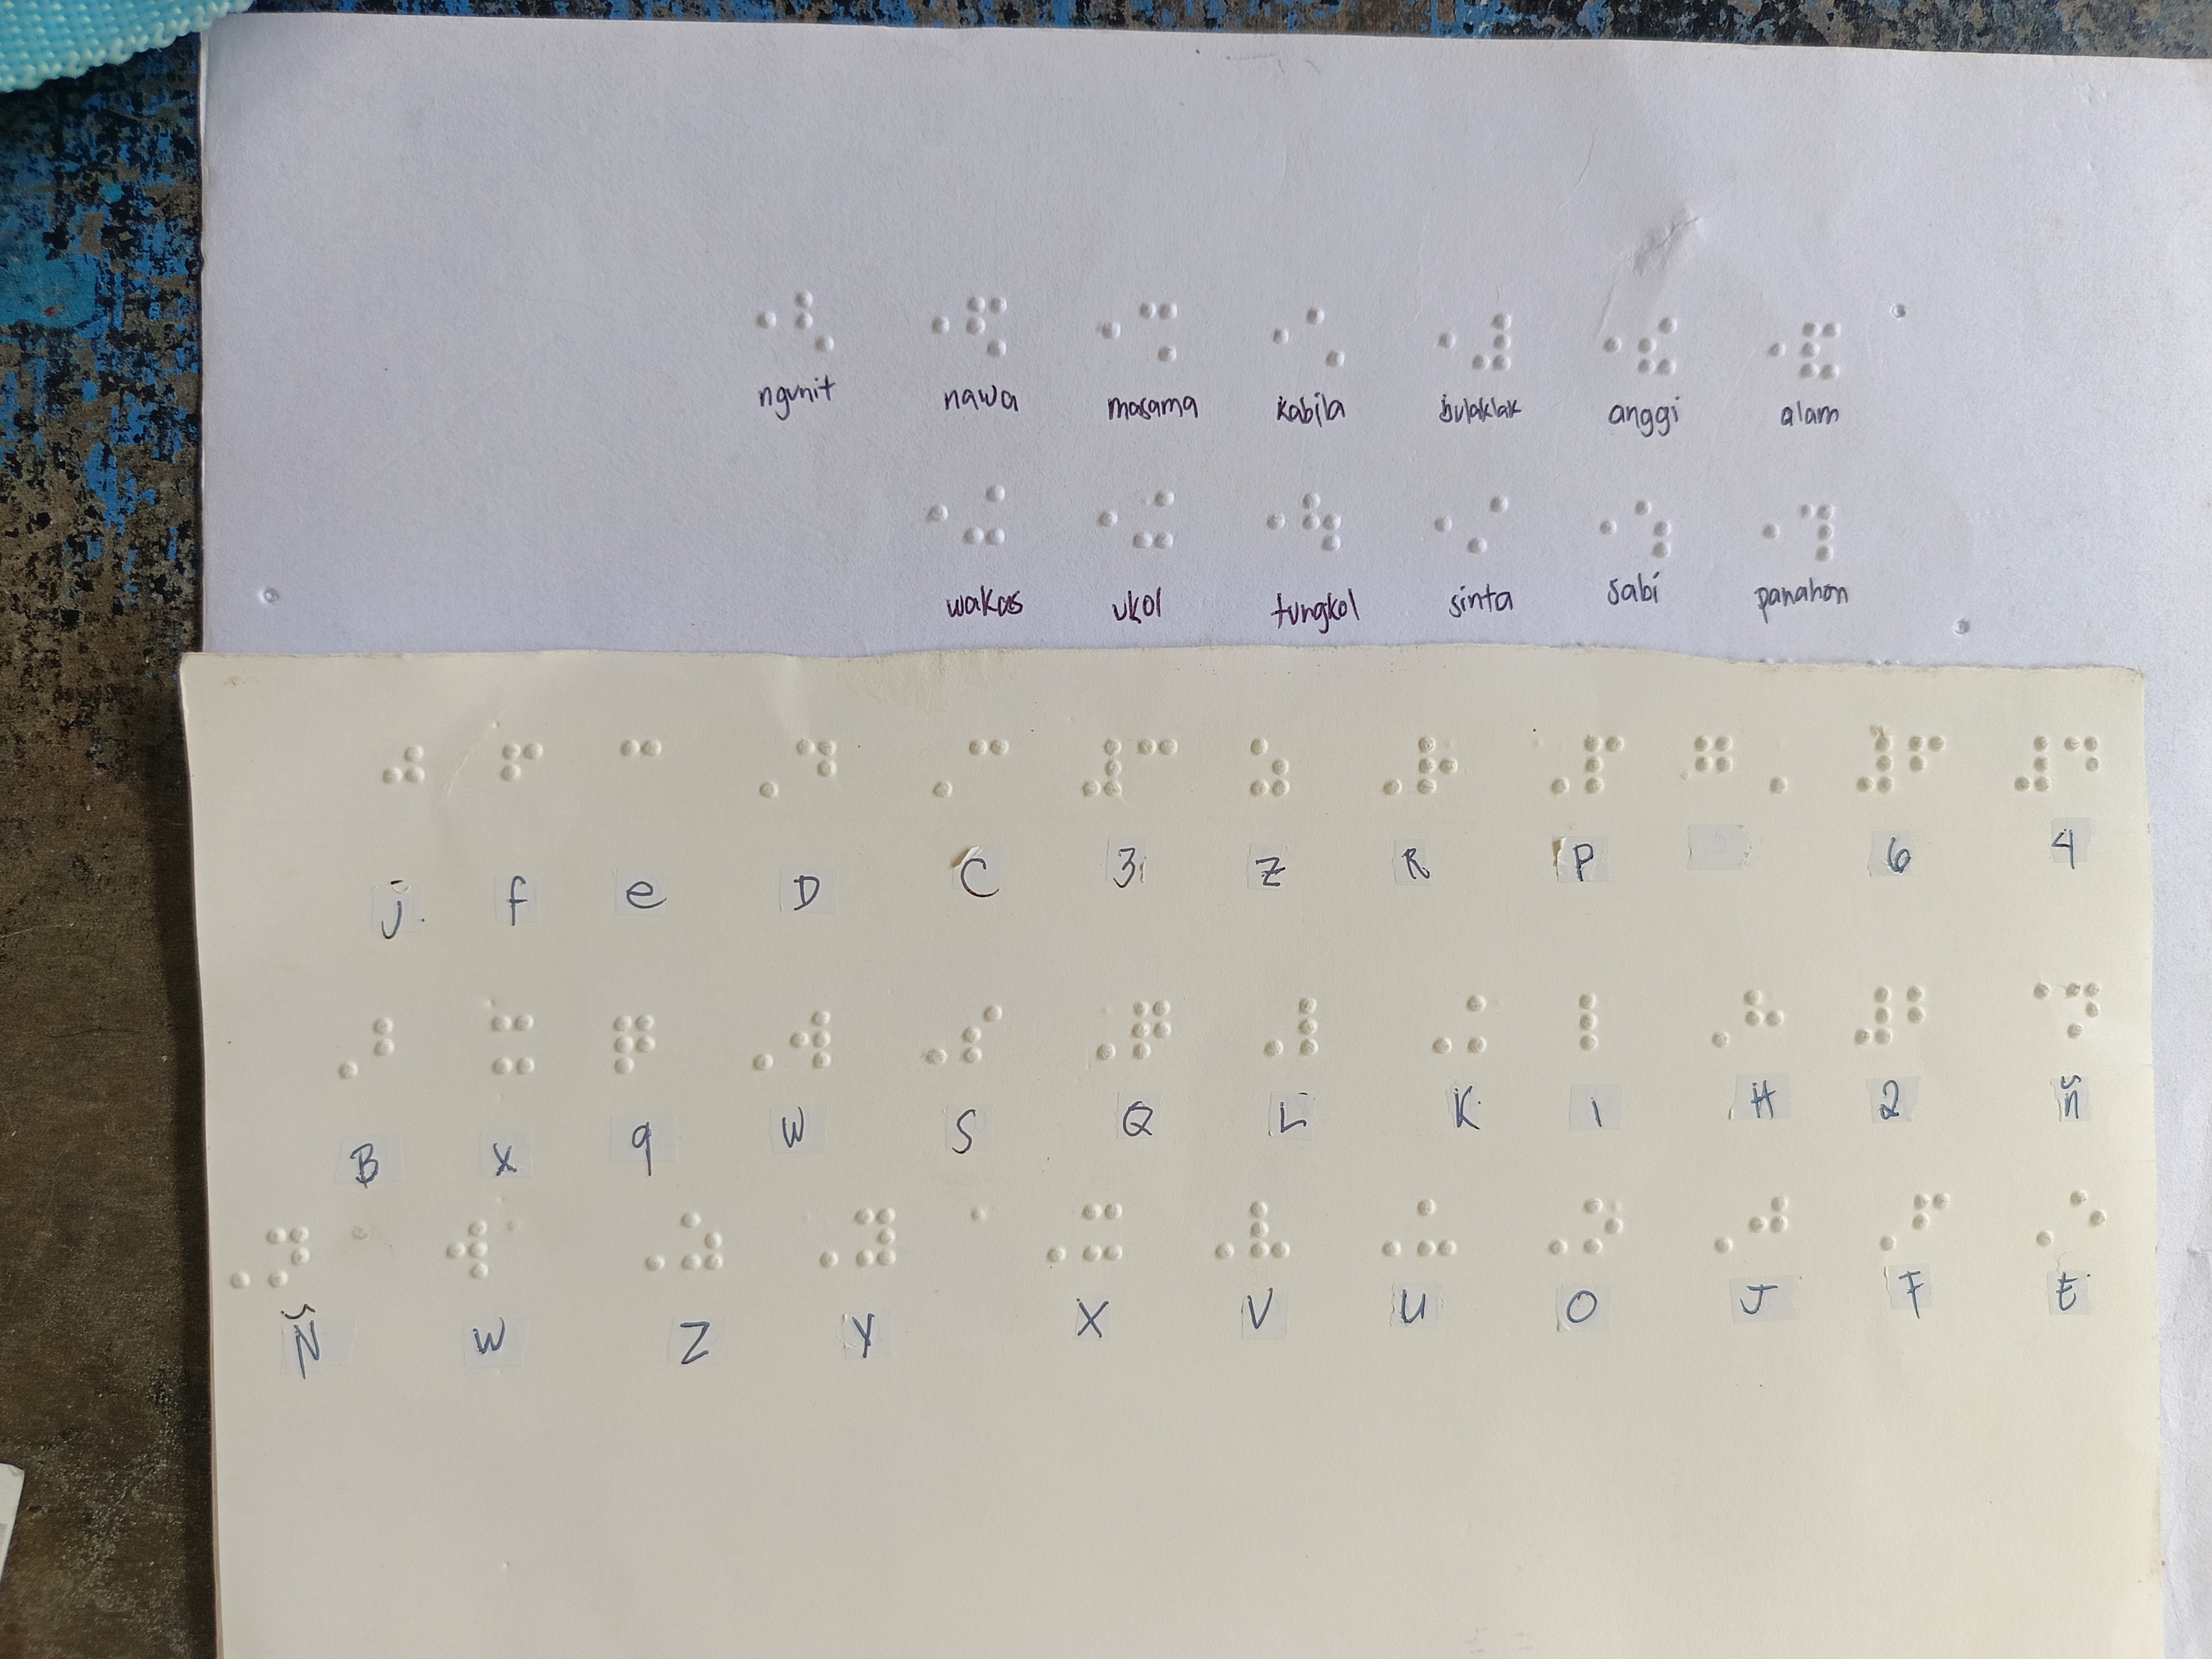 ngunit nawa masama kabila bulaklak anggi alam
wakas ukol tungkol sinta sabi panahon
j f e D C 3 Z R P 6 4
B x q W S Q L K l H 2 ñ
Ñ w Z Y X V U O J F E